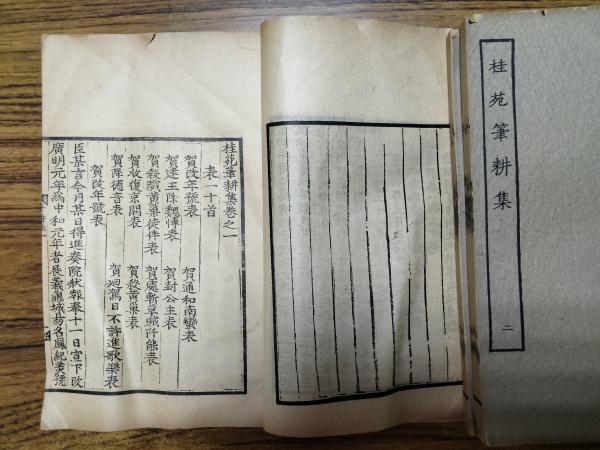 桂苑筆耕集
二
桂苑筆耕集卷之一
表一十首
賀改年號表　賀通和南蠻表
賀建王除魏博表　賀封公主表
賀殺戮黃巢徒伴表　賀處斬草賊阡能表
賀收復京闕表　賀殺黃巢表
賀降德音表　賀廻駕日不許進歌樂表
賀改年號表
臣某言今月某日得進奏院狀報奉十一日宣下改
廣明元年為中和元年者展義龜城易名鳳紀渙號